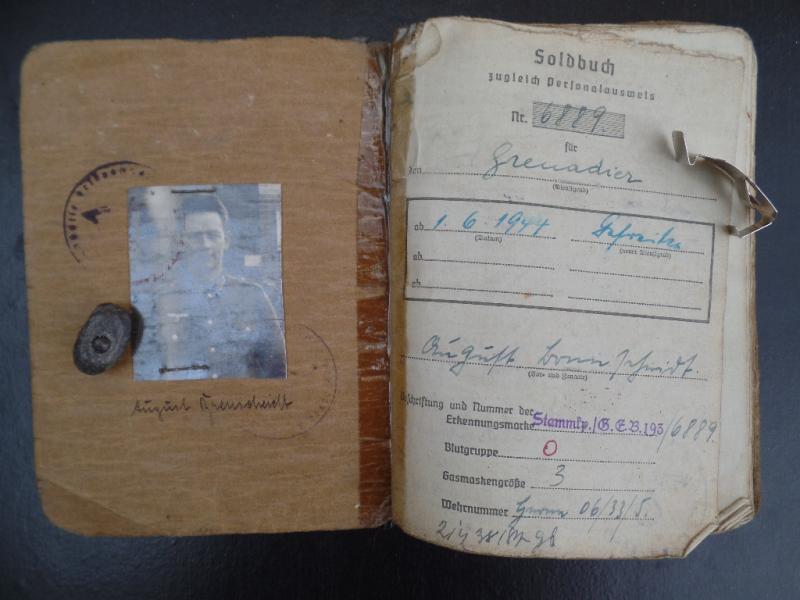 August
Soldbuch
zugleich Personalausweis
Nr. 6889
für
den Grenadier
(Dienstgrad)
ab 1.6.1944 Gefreiter
(Datum) (neuer Dienstgrad)
ab
ab
August
(Vor- und Zuname)
Beschriftung und Nummer der
Erkennungsmarke Stammkp./G.E.B.193 /6889
Blutgruppe O
Gasmaskengröße 3
Wehrnummer 06/33/5.